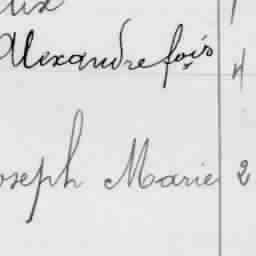 Alexandre fois 4
oseph Marie 2